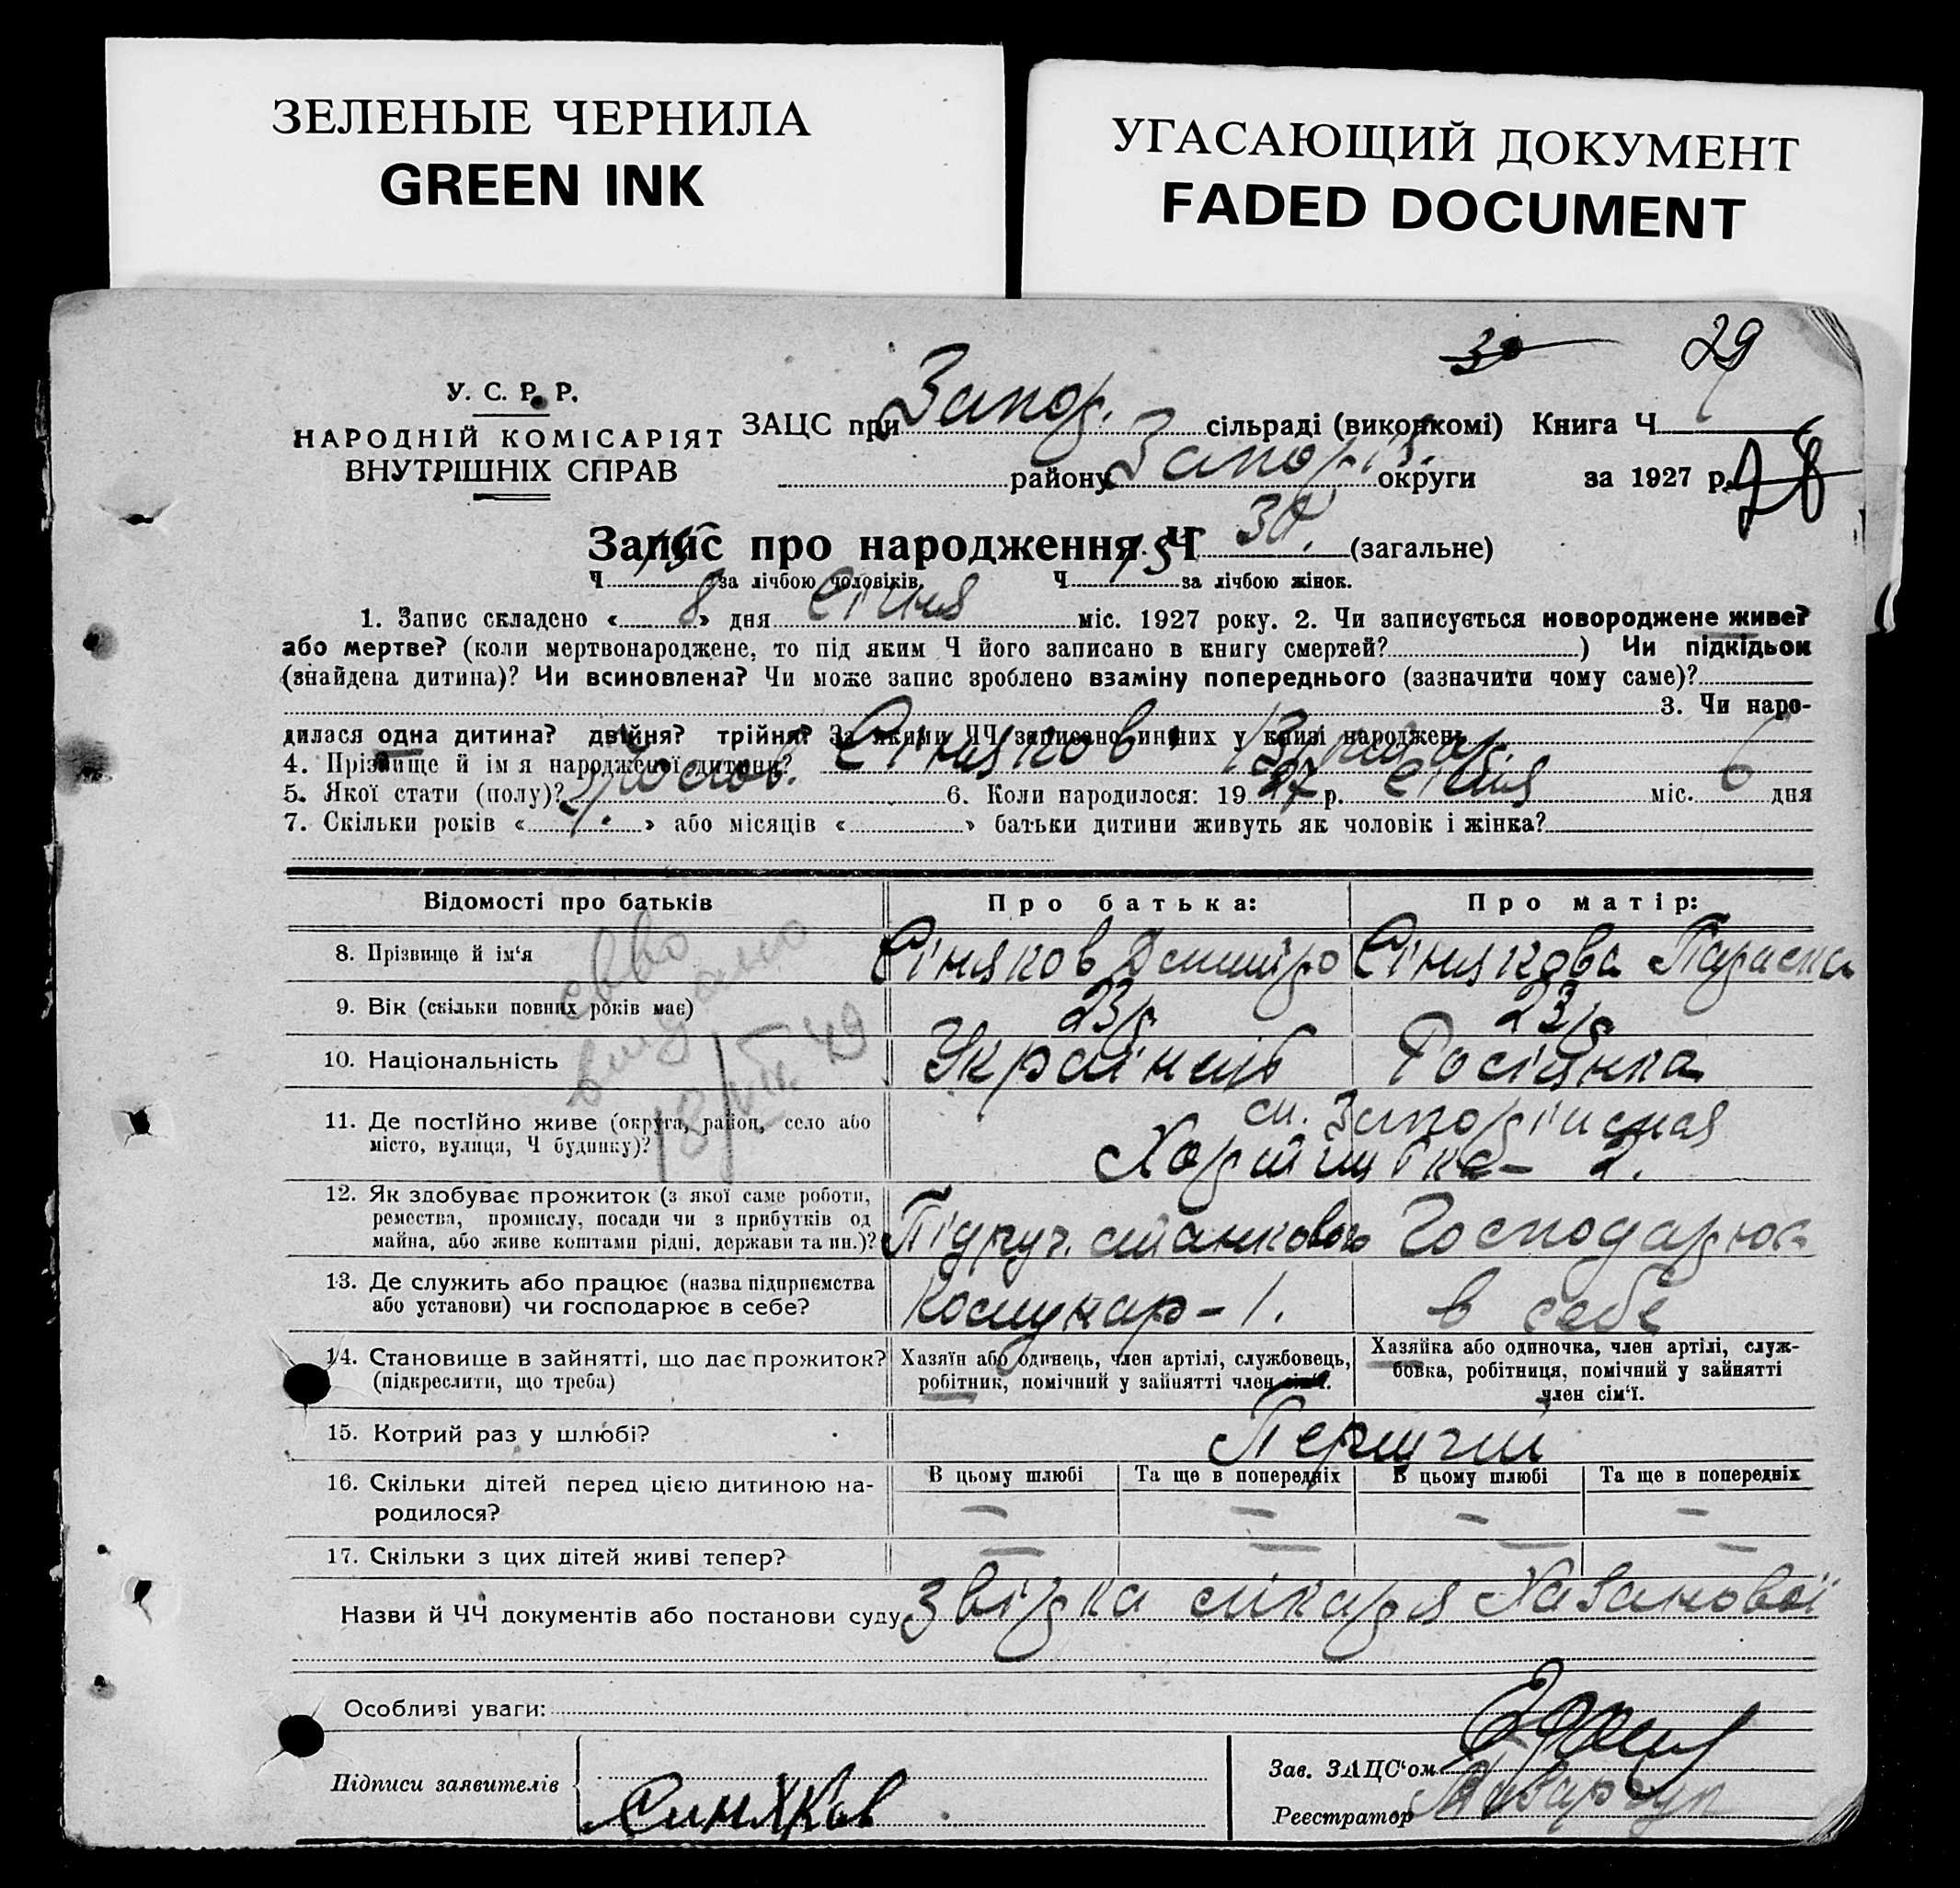 ЗЕЛЕНЫЕ ЧЕРНИЛА
GREEN INK
УГАСАЮЩИЙ ДОКУМЕНТ
FADED DOCUMENT
30 29
У. С. Р. Р.
НАРОДНІЙ КОМІСАРІЯТ
ВНУТРІШНІХ СПРАВ
ЗАЦС при Запор. сільраді (виконкомі) Книга Ч
району Запоріз. округи за 1927 р. 28
Запис про народження Ч 30. (загальне)
Ч 15 за лічбою чоловіків. Ч 15 за лічбою жінок.
1. Запис складено « 8 » дня Січня міс. 1927 року. 2. Чи записується новороджене живе?
або мертве? (коли мертвонароджене, то під яким Ч його записано в книгу смертей? ) Чи підкідьок
(знайдена дитина)? Чи всиновлена? Чи може запис зроблено взаміну попереднього (зазначити чому саме)?
3. Чи наро-
дилася одна дитина? двійня? трійня? За якими ЧЧ записано инших у книзі народжень
4. Прізвище й ім я народженої дитини? Сіняков
5. Якої статі (полу)? Чолов. 6. Коли народилося: 19 27 р. Січня міс. 6 дня
7. Скільки років « 2 р. » або місяців « » батьки дитини живуть як чоловік і жінка?
Відомості про батьків Про батька: Про матір:
8. Прізвище й ім'я Сіняков Дмитро Сінякова Параска
9. Вік (скільки повних років має) 23 р. 23 р.
10. Національність Українець Росіянка
11. Де постійно живе (округа, район, село або
місто, вулиця, Ч будинку)?
Хортицька - 2.
12. Як здобуває прожиток (з якої саме роботи,
ремества, промислу, посади чи з прибутків од
майна, або живе коштами рідні, держави та ин.)?
Підруч. станкового Господарює
13. Де служить або працює (назва підприємства
або установи) чи господарює в себе?
Комунар - 1. в себе
14. Становище в зайнятті, що дає прожиток?
(підкреслити, що треба)
Хазяїн або одинець, член артілі, службовець,
робітник, помічний у зайнятті член сім'ї.
Хазяйка або одиночка, член артілі, служ-
бовка, робітниця, помічний у зайнятті
член сім'ї.
15. Котрий раз у шлюбі? Перший
16. Скільки дітей перед цією дитиною на-
родилося?
В цьому шлюбі Та ще в попередніх В цьому шлюбі Та ще в попередніх
– – – –
17. Скільки з цих дітей живі тепер? – – – –
Назви й ЧЧ документів або постанови суду Звірка лікаря Хазанової
Особливі уваги:
Підписи заявителів Синяков
Зав. ЗАЦС'ом
Реєстратор
св во
видано
18/VIII. 49